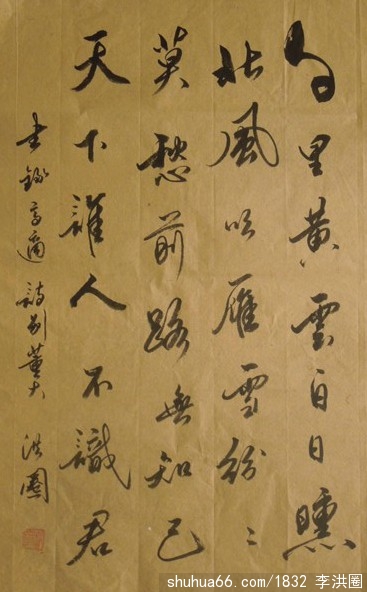 里黄雲白日曛
北風吹雁雪紛〻
莫愁前路無知己
天下誰人不識君
書錄高適詩別董大 洪圈
shuhua66.com/1832 李洪圈